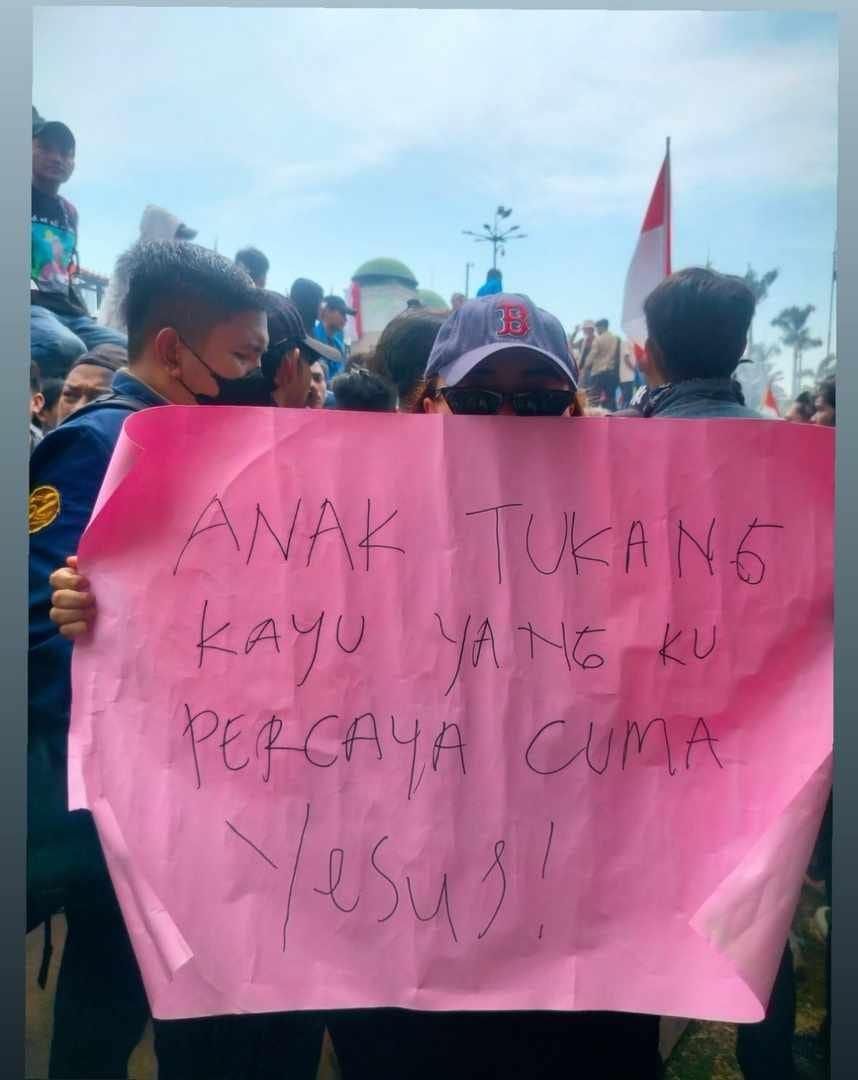 B
ANAK TUKANG
KAYU YANG KU
PERCAYA CUMA
Yesus!